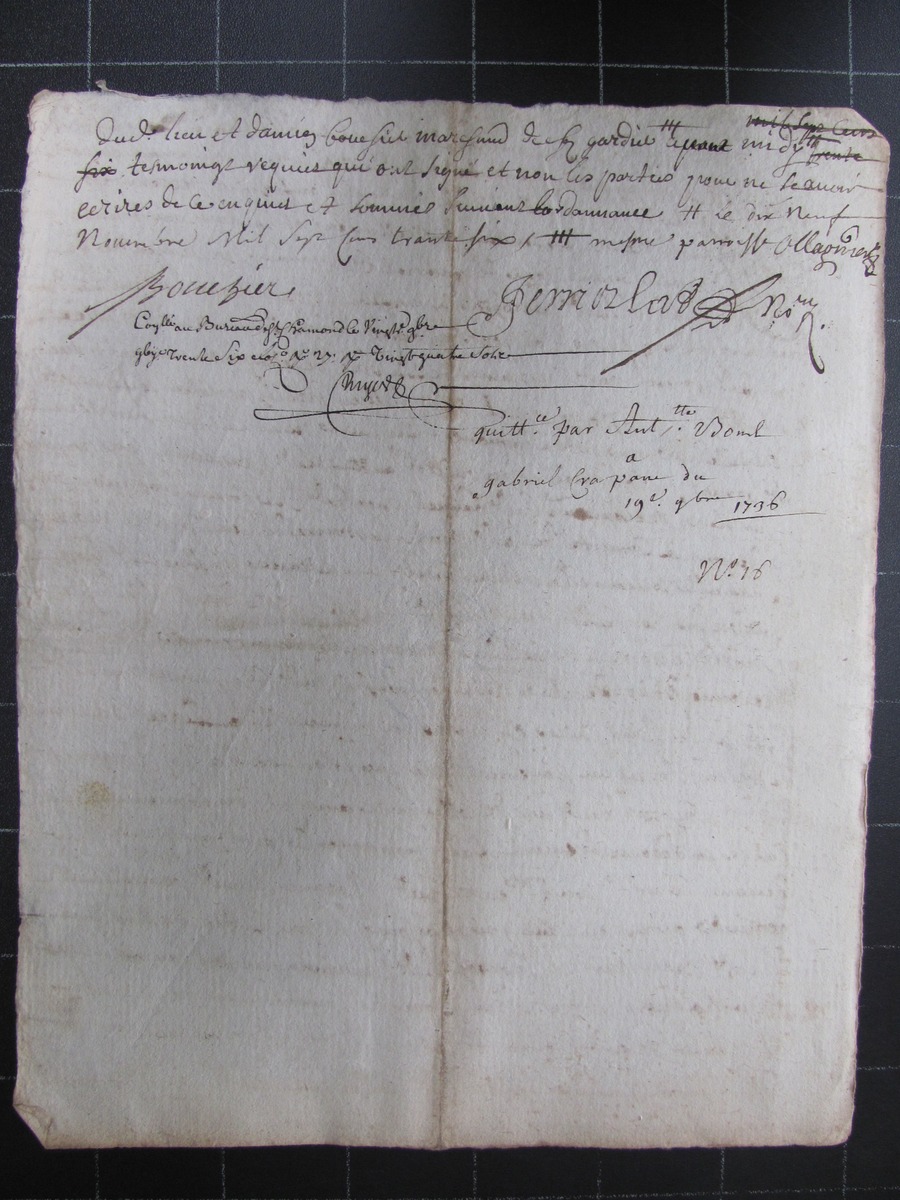 dud. lieu et damien bouchet marchand de st gardie ## avant midy ## mil sept cens trente
six tesmoingt requist qui ont signé et non les parties pour ne scavoir
ecrires de ce enquist et sommes suivant lordonnance # le dix neuf
Novembre Mil sept cens trante six / ## mesme paroisse
Bouchier
Ferriolat No.re
Con.llé au Bureau de St Chamond le vingt 9bre
trente six vingt quatre sols
quitt.ce par Ant.tte Bomt
a
gabriel Crapane du
19e. 9bre 1736
No. 16